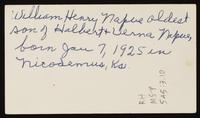 William Henry Napue oldest
son of Halbert & Verna Napue,
born Jan 7, 1925 in
Nicodemus, Ks.
RH
MS P
545.7.10